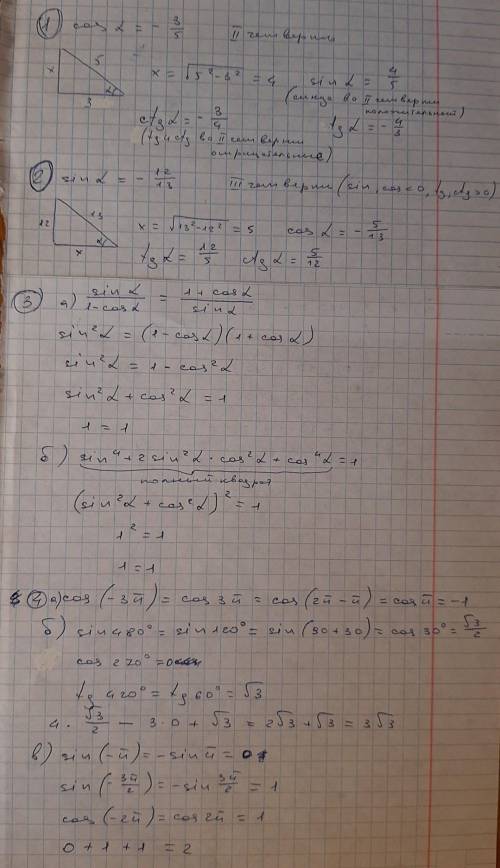 ① cos α = - 3/5 II четверти
x 5 α 3
x = √(5²-3²) = 4 sin α = 4/5
(синус во II четверти положительный)
ctg α = - 3/4 tg α = - 4/3
(tg и ctg во II четверти отрицательные)
② sin α = - 12/13 III четверти (sin, cos < 0, tg, ctg > 0)
12 13 α x
x = √(13²-12²) = 5 cos α = - 5/13
tg α = 12/5 ctg α = 5/12
③ а) sin α/(1-cos α) = (1+cos α)/sin α
sin²α = (1-cos α)(1+cos α)
sin²α = 1 - cos²α
sin²α + cos²α = 1
1 = 1
б) sin⁴ + 2 sin²α · cos²α + cos⁴α = 1
полный квадрат
(sin²α + cos²α)² = 1
1² = 1
1 = 1
④ а) cos (-3π) = cos 3π = cos (2π - π) = cos π = -1
б) sin 480° = sin 120° = sin (90+30) = cos 30° = √3/2
cos 270° = 0
tg 420° = tg 60° = √3
4 · √3/2 - 3·0 + √3 = 2√3 + √3 = 3√3
в) sin (-π) = - sin π = 0
sin (- 3π/2) = - sin 3π/2 = 1
cos (-2π) = cos 2π = 1
0 + 1 + 1 = 2